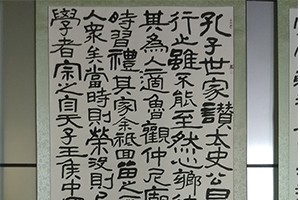 孔子世家讚太史公曰
行止雖不能至然心鄉往
其為人適魯觀仲尼廟
時習禮其家余祗回留之
人衆矣當時則榮沒則已
學者宗之自天子王侯中